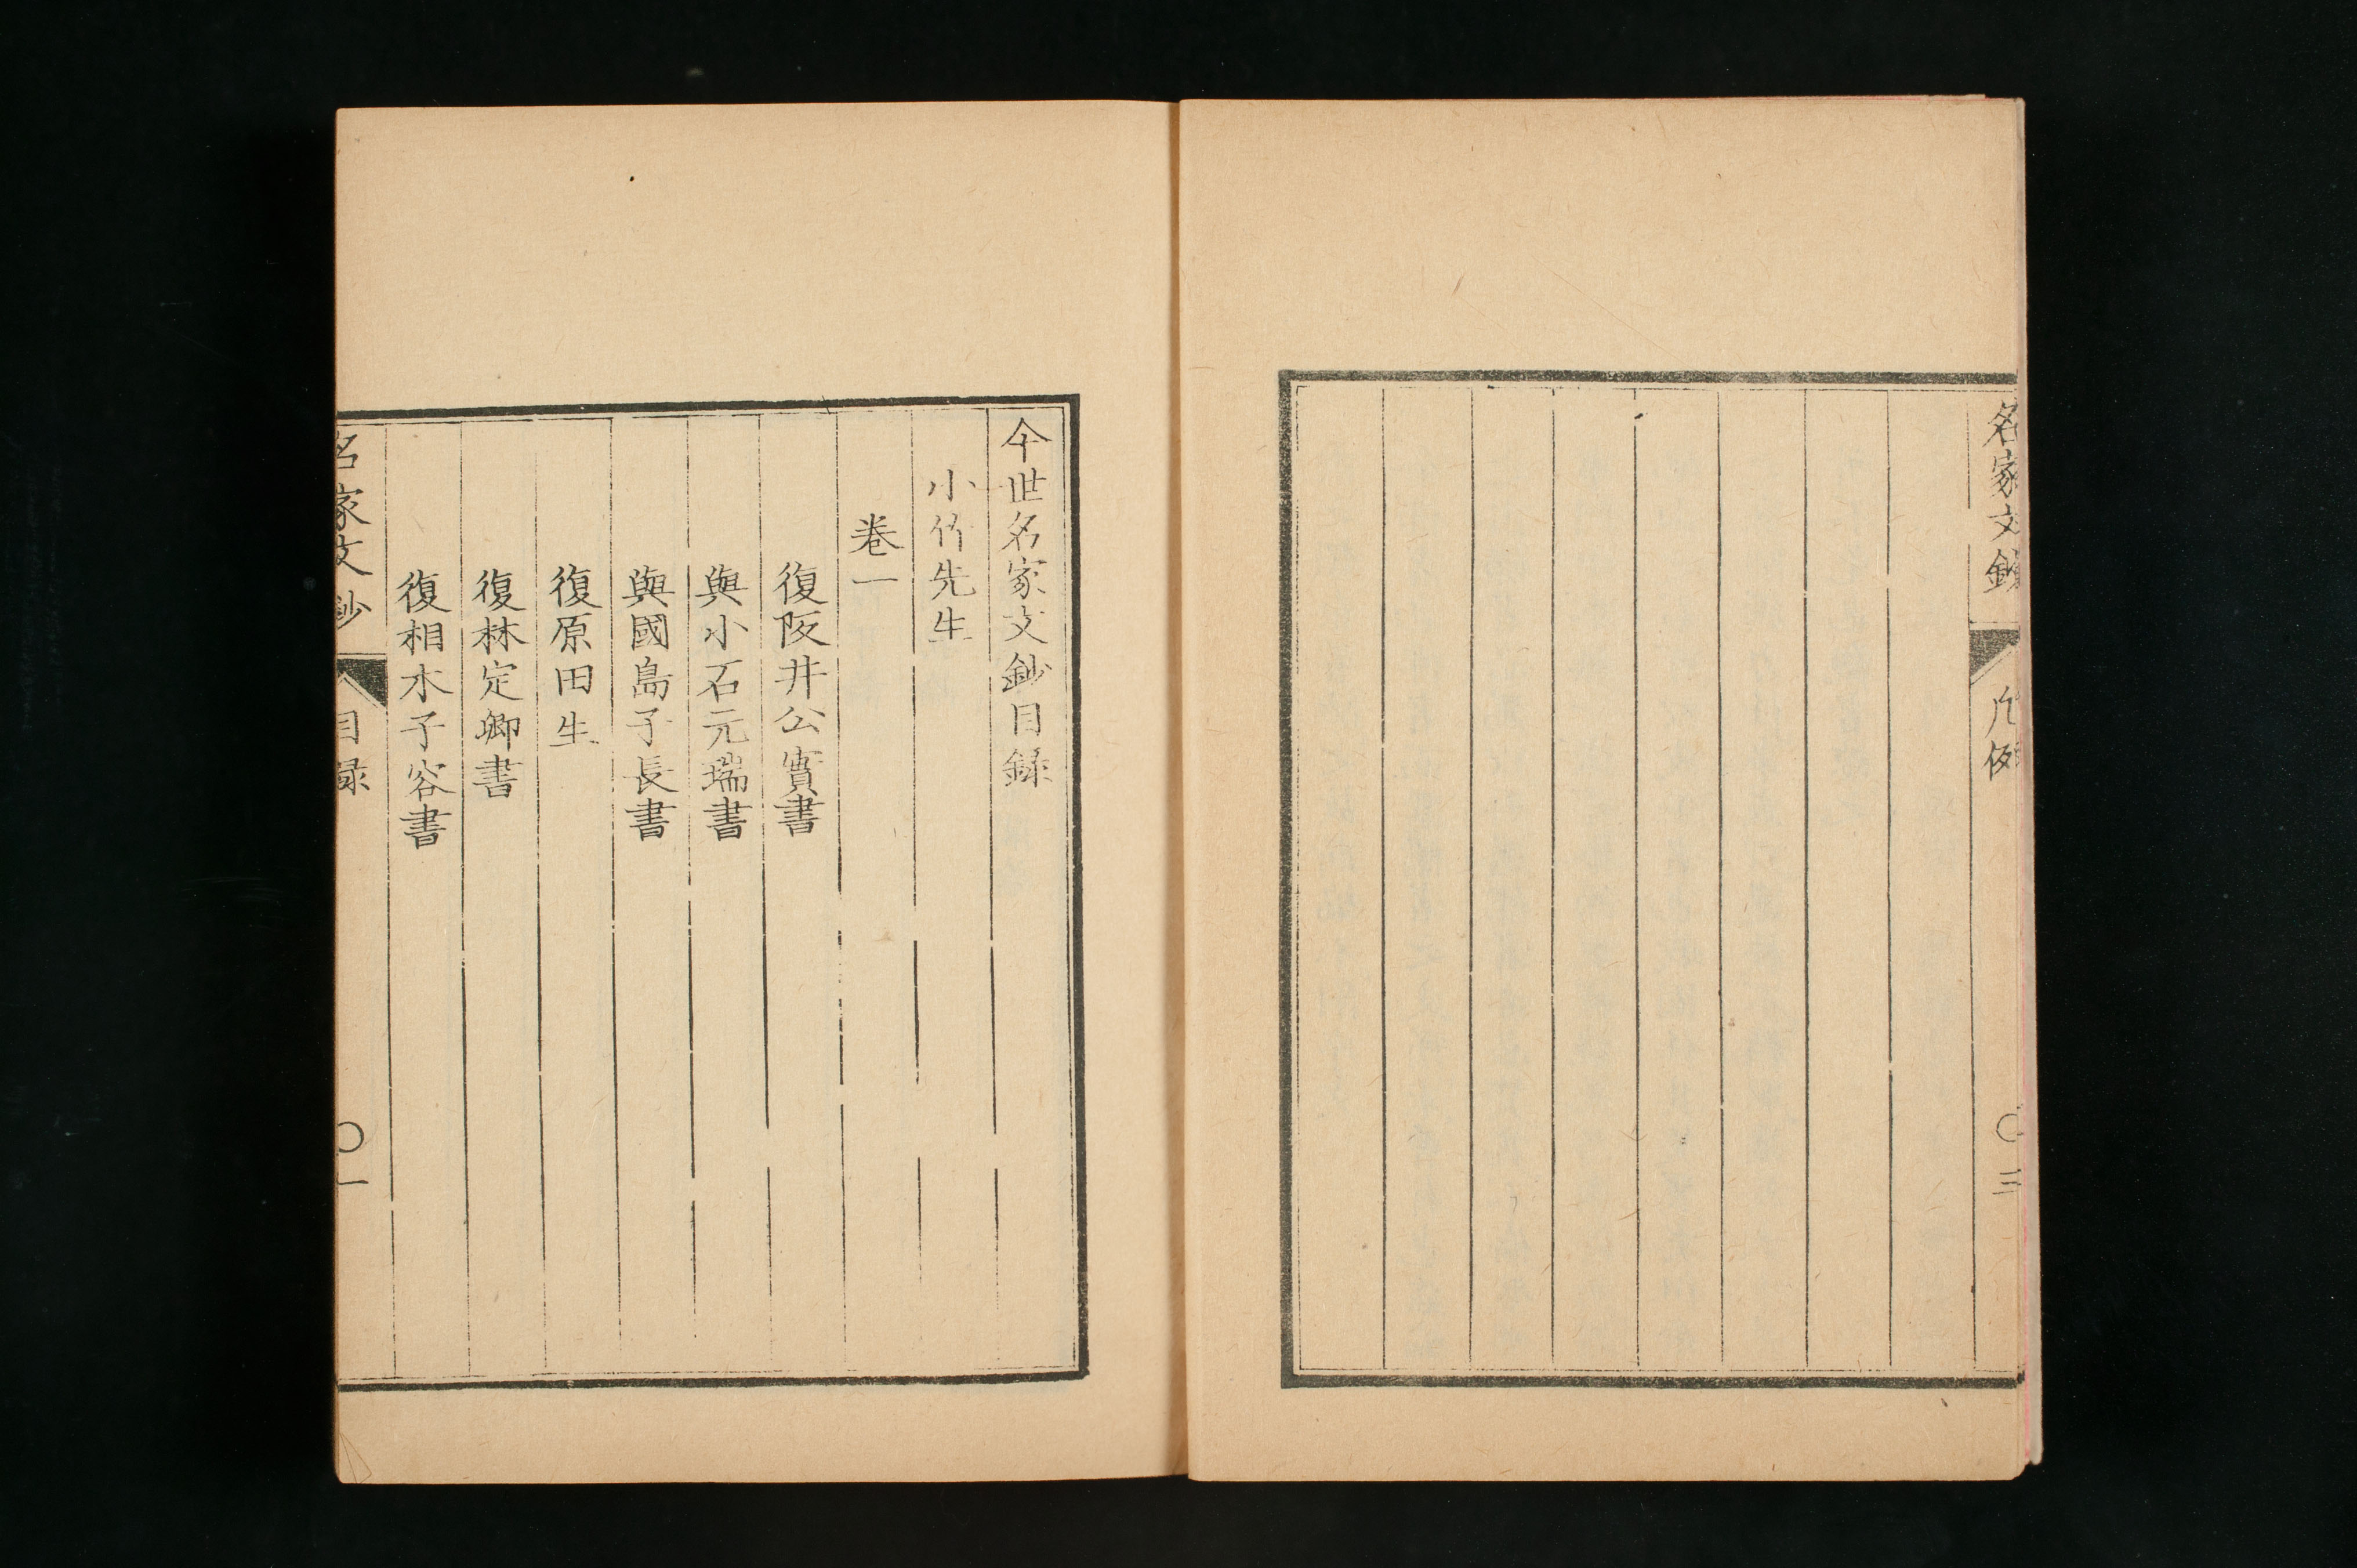 名家文鈔
凡例
〇三
今世名家文鈔目録
小竹先生
卷一
復阪井公實書
與小石元瑞書
與國島子長書
復原田生
復林定卿書
復相木子容書
名家文鈔
目録
〇一